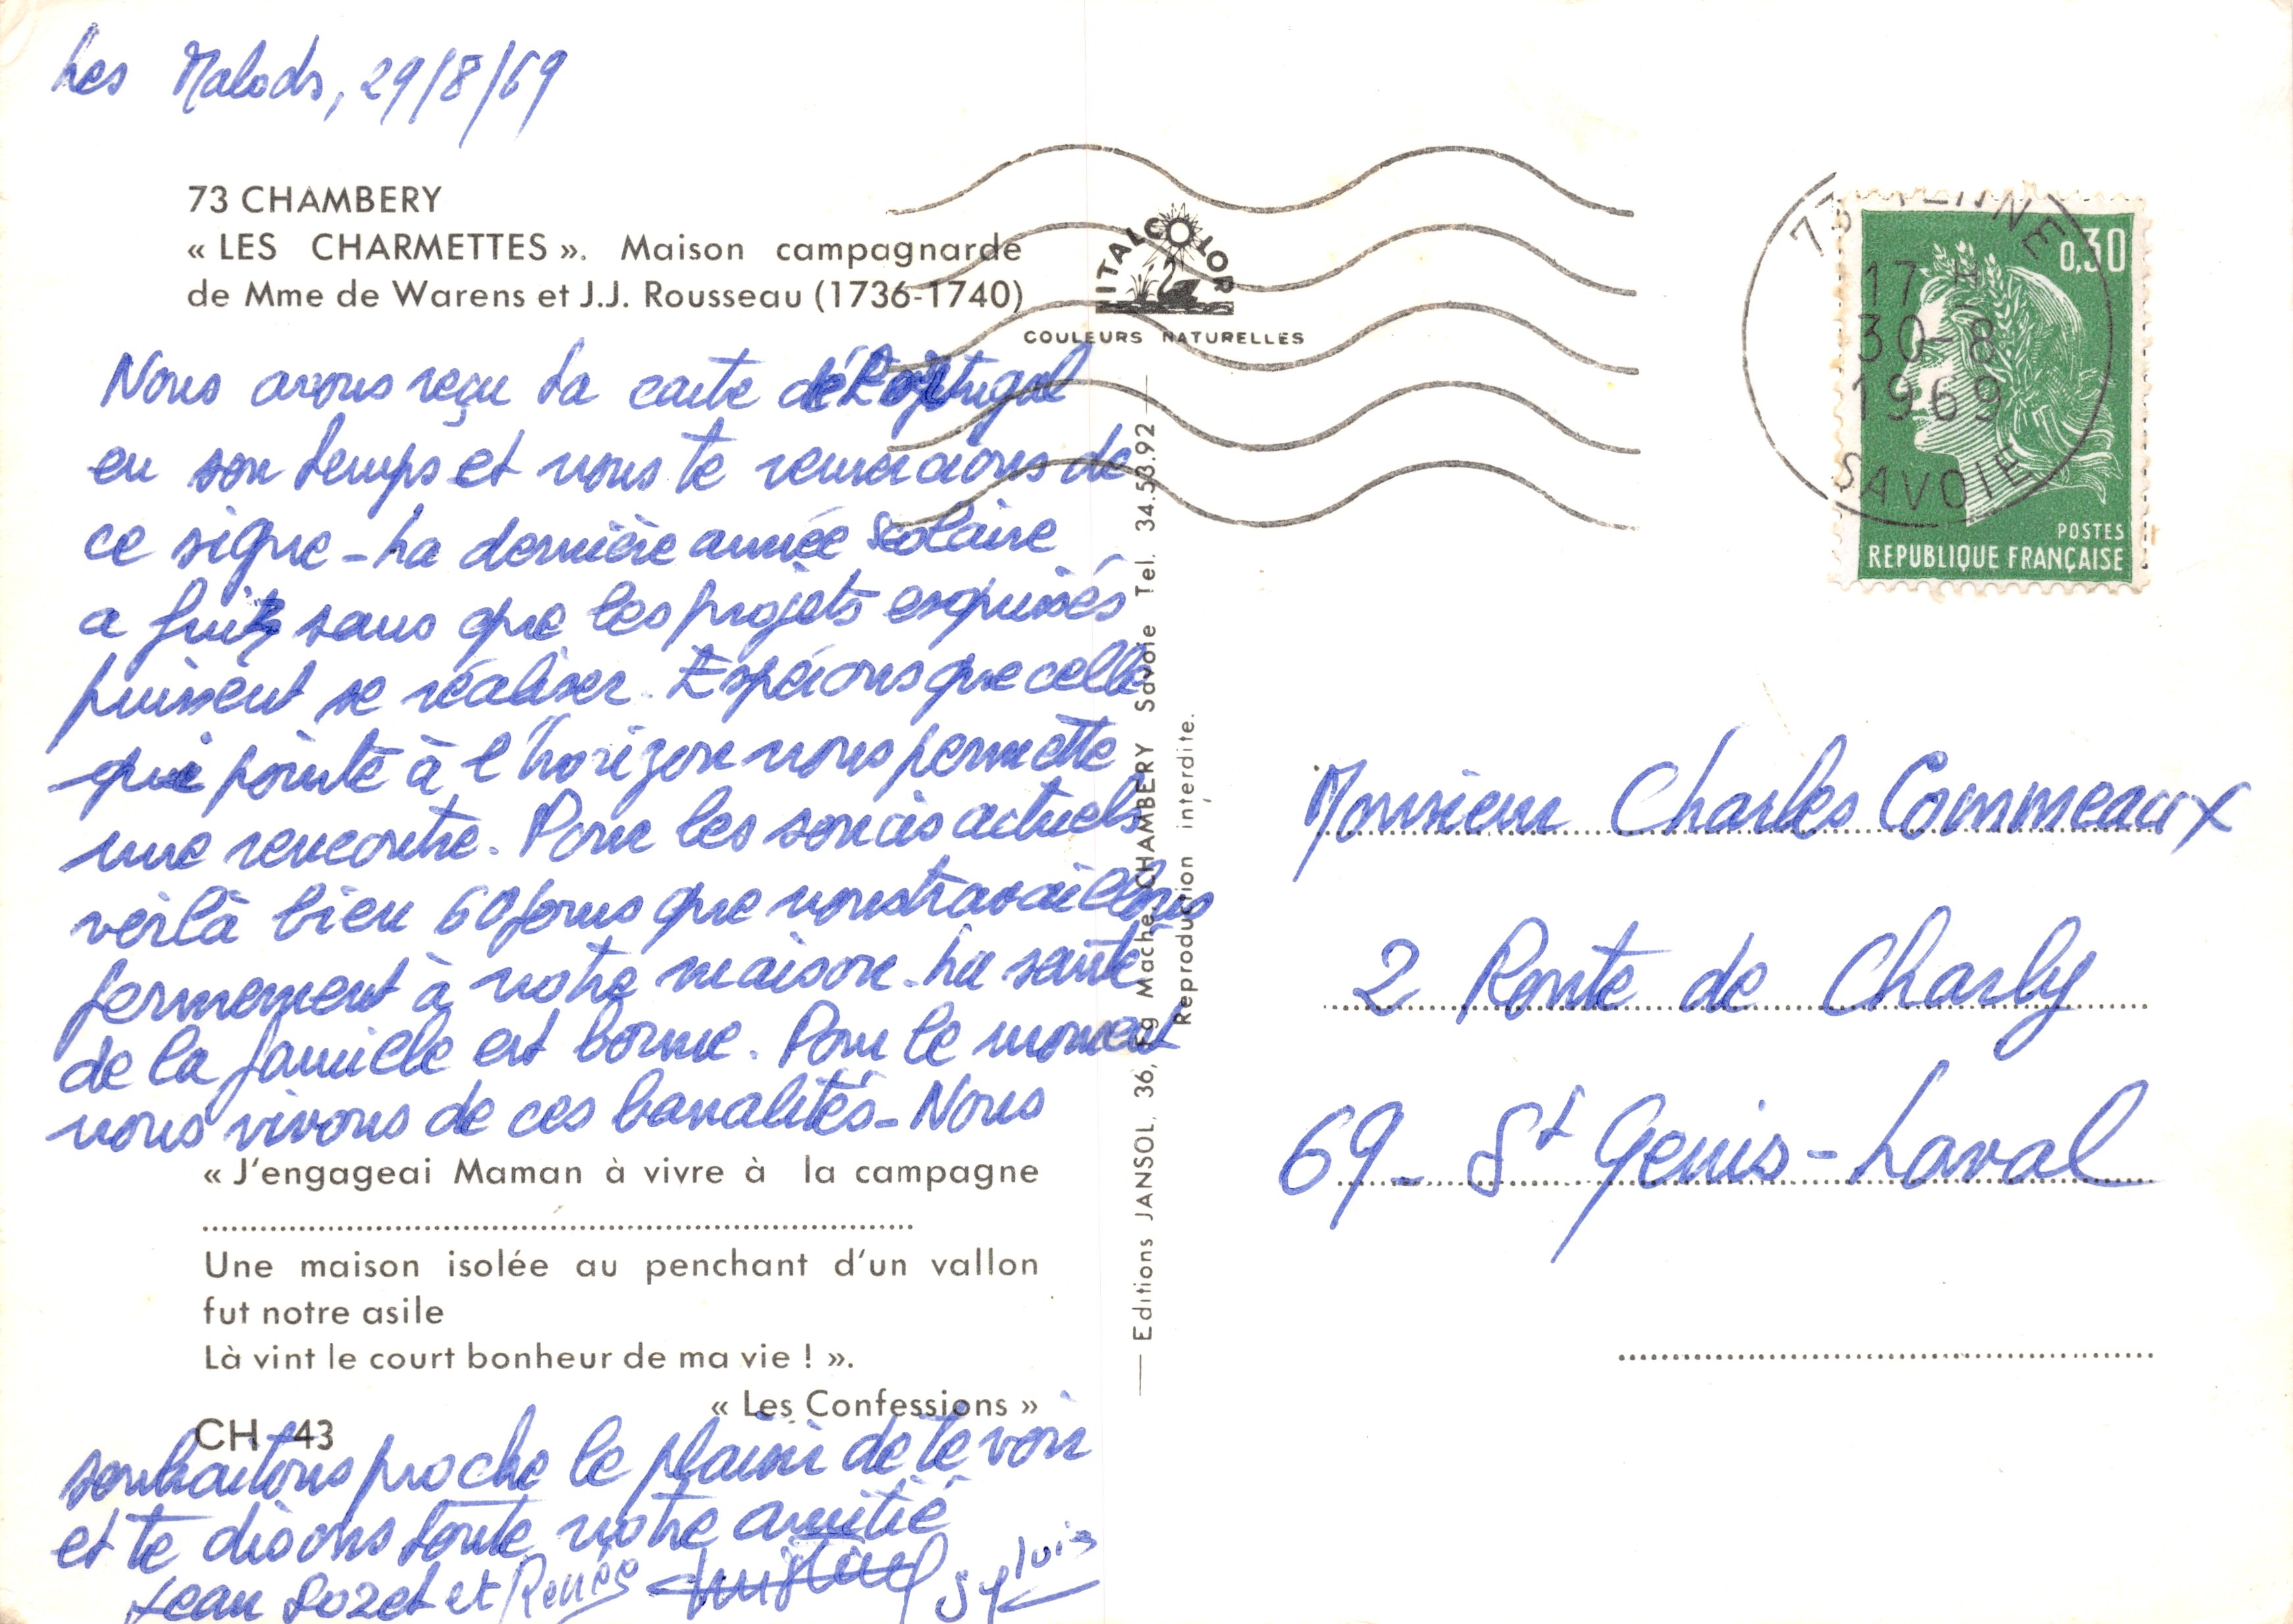 Les Malods, 29/8/69
73 CHAMBERY
« LES CHARMETTES ». Maison campagnarde
de Mme de Warens et J.J. Rousseau (1736-1740)
Nous avons reçu ta carte de Portugal
en son temps et nous te remercions de
ce signe - La dernière année scolaire
a fui sans que les projets esquissés
puissent se réaliser. Espérons que celle
qui pointe à l'horizon nous permette
une rencontre. Pour les soucis actuels
voilà bien 60 jours que nous travaillons
fermement à notre maison. La santé
de la famille est bonne. Pour le moment
nous vivons de ces banalités - Nous
« J'engageai Maman à vivre à la campagne
Une maison isolée au penchant d'un vallon
fut notre asile
Là vint le court bonheur de ma vie ! ».
« Les Confessions »
CH 43
souhaitons proche le plaisir de te voir
et te disons toute notre amitié
Jean Lozet et Renée Sylvie
ITALCOLOR
COULEURS NATURELLES
— Editions JANSOL, 36, Fg Maché, CHAMBERY Savoie Tel. 34.53.92 —
Reproduction interdite.
73 YENNE
17 H
30-8
1969
SAVOIE
0,30
POSTES
REPUBLIQUE FRANÇAISE
Monsieur Charles Commeaux
2 Route de Charly
69 - St Genis-Laval